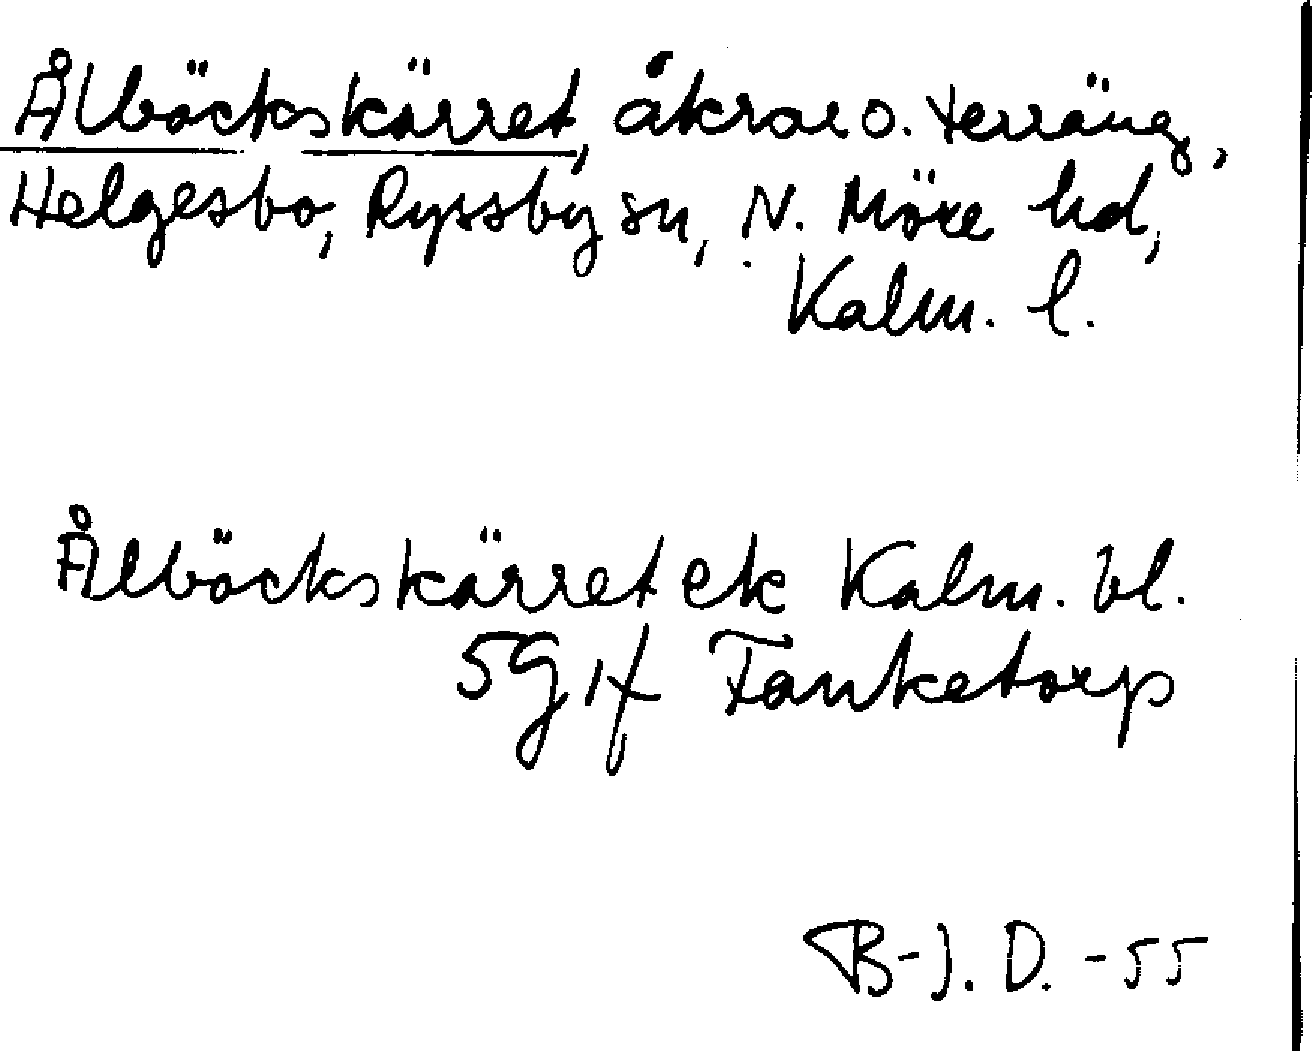 Ålböckskärret, åkrar o. terräng,
Helgesbo, Ryssby sn, N. Möre hd,
Kalm. l.
Ålböckskärret ek Kalm. bl.
5G If Tanketorp
B-J. D. -55